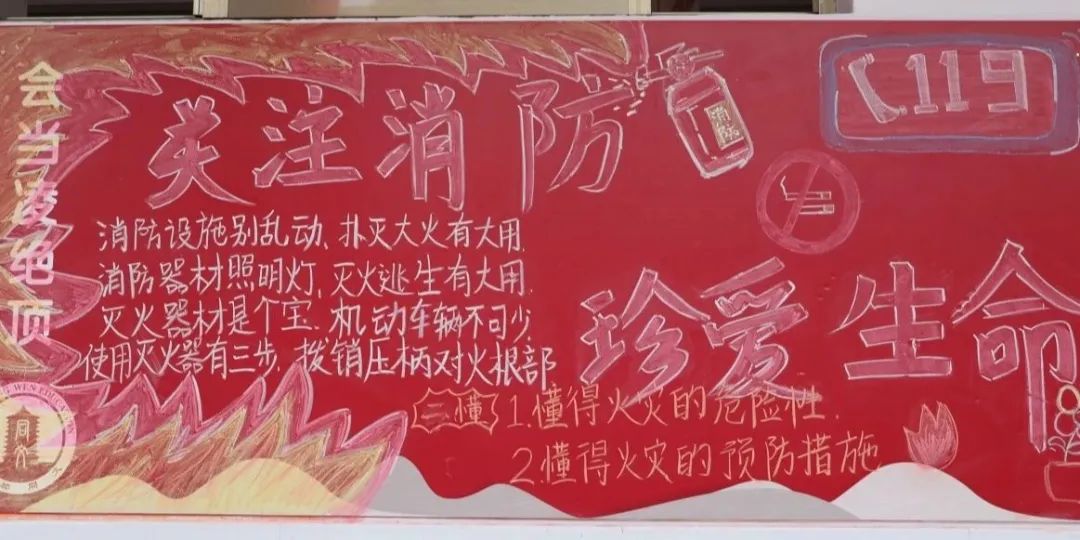 会当凌绝顶
关注消防
消防
119
消防设施别乱动、扑灭大火有大用.
消防器材照明灯,灭火逃生有大用.
灭火器材是个宝.机动车辆不可少.
使用灭火器有三步.拨销压柄对火根部
珍爱生命
三懂 1.懂得火灾的危险性.
2.懂得火灾的预防措施